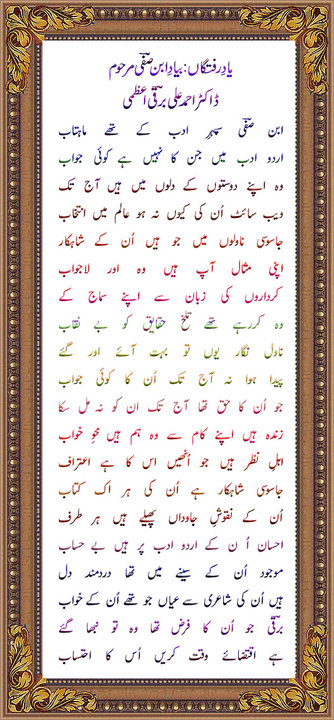 یادِ رفتگاں: بیادِ ابن صفی مرحوم
ڈاکٹر احمد علی برقی اعظمی
ابن صفی سپہرِ ادب کے تھے ماہتاب
اردو ادب میں جن کا نہیں ہے کوئی جواب
وہ اپنے دوستوں کے دلوں میں ہیں آج تک
ویب سائٹ اُن کی کیوں نہ ہو عالم میں انتخاب
جاسوسی ناولوں میں جو ہیں اُن کے شاہکار
اپنی مثال آپ ہیں وہ اور لاجواب
کرداروں کی زبان سے اپنے سماج کے
وہ کررہے تھے تلخ حقایق کو بے نقاب
ناول نگار یوں تو بہت آئے اور گئے
پیدا ہوا نہ آج تک اُن کا کوئی جواب
جو اُن کا حق تھا آج تک ان کو نہ مل سکا
زندہ ہیں اپنے کام سے وہ ہم ہیں محوِ خواب
اہلِ نظر ہیں جو اُنھیں اس کا ہے اعتراف
جاسوسی شاہکار ہے اُن کی ہر اک کتاب
اُن کے نقوشِ جاوداں پھیلے ہیں ہر طرف
احسان اُن کے اردو ادب پر ہیں بے حساب
موجود اُن کے سینے میں تھا دردمند دل
ہیں اُن کی شاعری سے عیاں جو تھے اُن کے خواب
برقی جو اُن کا فرض تھا وہ تو نبھا گئے
ہے اقتضائے وقت کریں اُس کا احتساب